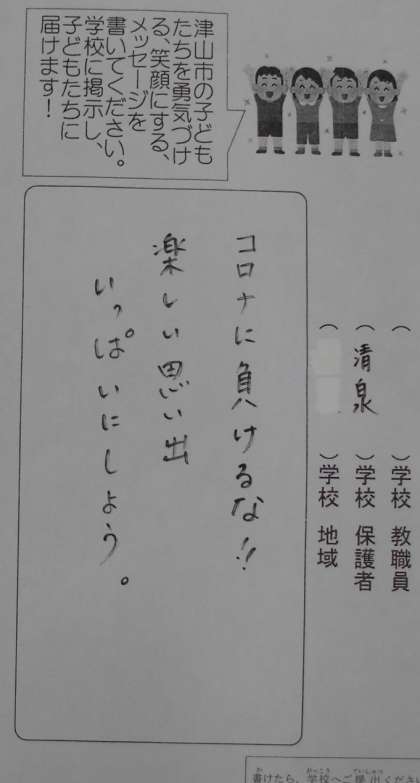 津山市の子ども
たちを勇気づけ
る、笑顔にする、
メッセージを
書いてください。
学校に掲示し、
子どもたちに
届けます！
（　　　）学校 教職員
（清泉）学校 保護者
（　　　）学校 地域
コロナに負けるな!!
楽しい思い出
いっぱいにしよう。
書けたら、学校へご提出くださ